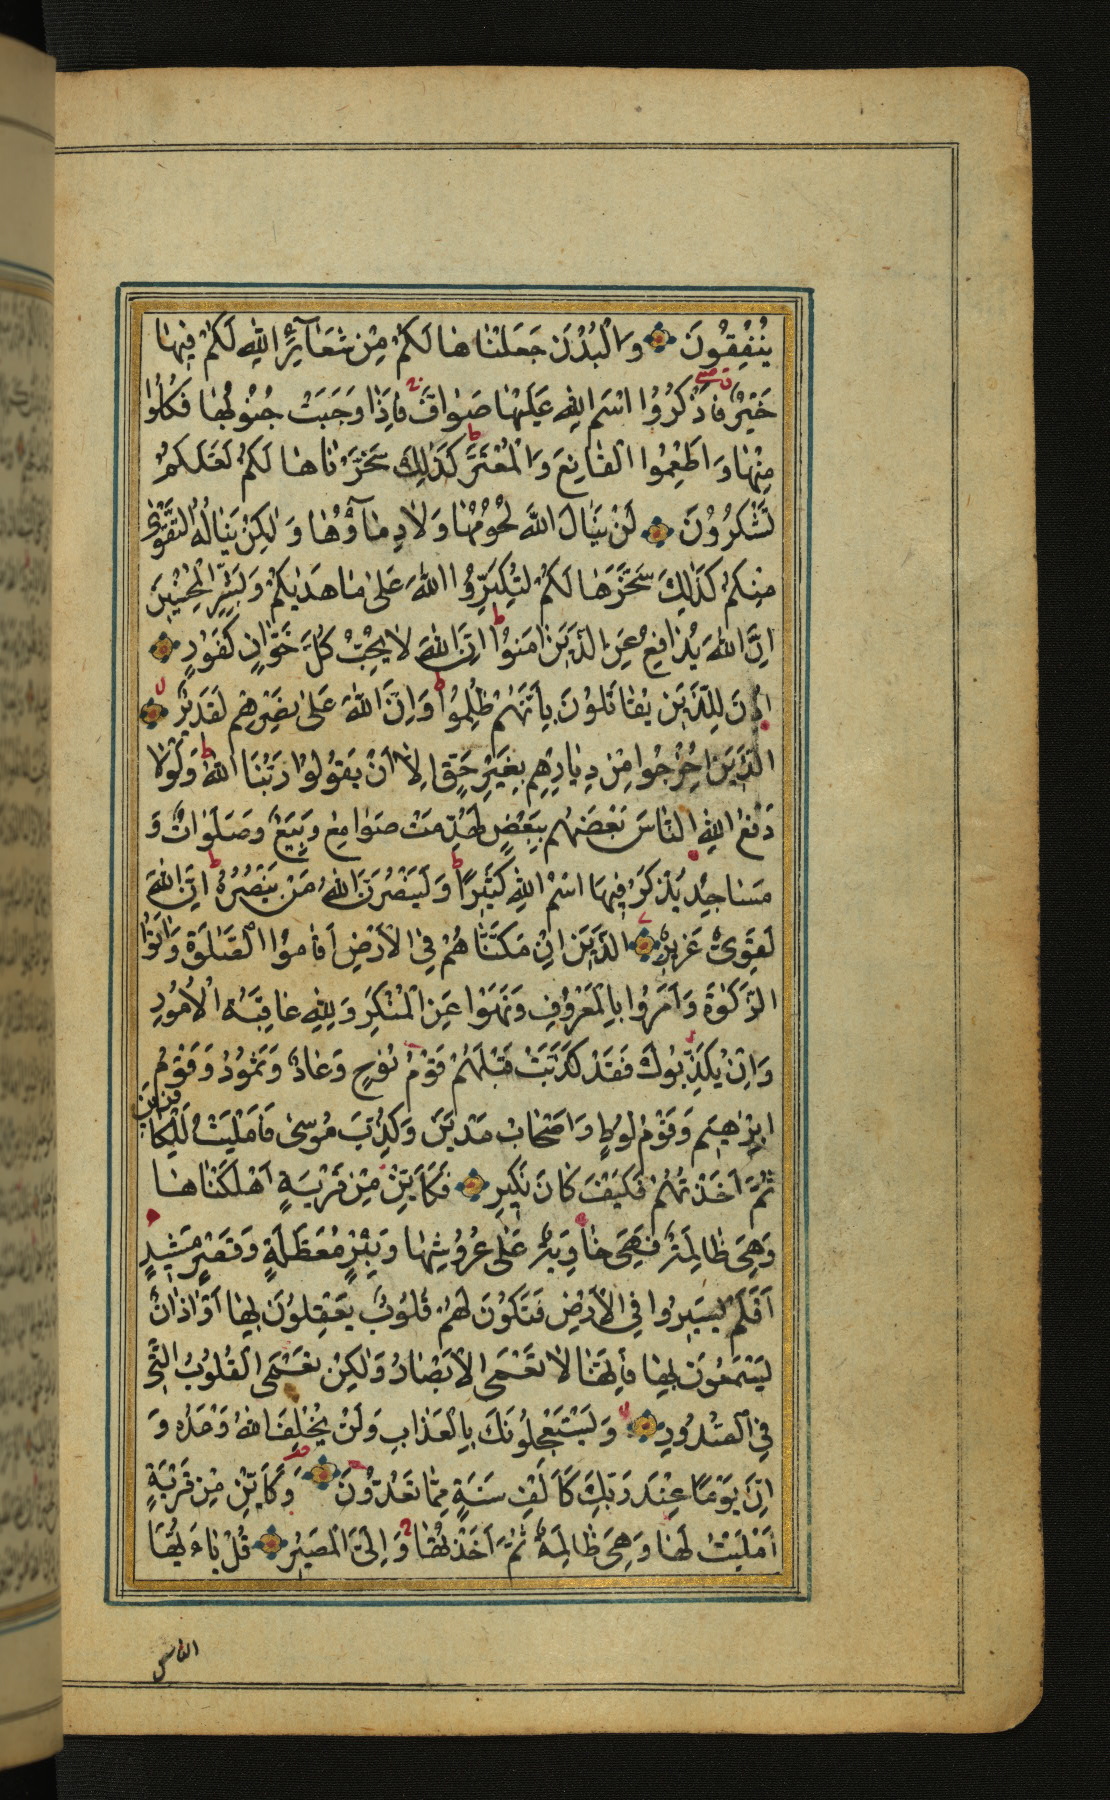 يُنْفِقُونَ وَالْبُدْنَ جَعَلْنَاهَا لَكُمْ مِنْ شَعَآئِرِ اللهِ لَكُمْ فِيهَا
خَيْرٌ فَاذْكُرُوا اسْمَ اللهِ عَلَيْهَا صَوَافَّ فَاِذَا وَجَبَتْ جُنُوبُهَا فَكُلُوا
مِنْهَا وَاَطْعِمُوا الْقَانِعَ وَالْمُعْتَرَّ كَذٰلِكَ سَخَّرْنَاهَا لَكُمْ لَعَلَّكُمْ
تَشْكُرُونَ لَنْ يَنَالَ اللهَ لُحُومُهَا وَلَا دِمَآؤُهَا وَلٰكِنْ يَنَالُهُ التَّقْوٰى
مِنْكُمْ كَذٰلِكَ سَخَّرَهَا لَكُمْ لِتُكَبِّرُوا اللهَ عَلٰى مَا هَدٰيكُمْ وَبَشِّرِ الْمُحْسِنِينَ
اِنَّ اللهَ يُدَافِعُ عَنِ الَّذِينَ اٰمَنُوا اِنَّ اللهَ لَا يُحِبُّ كُلَّ خَوَّانٍ كَفُورٍ
اُذِنَ لِلَّذِينَ يُقَاتَلُونَ بِاَنَّهُمْ ظُلِمُوا وَاِنَّ اللهَ عَلٰى نَصْرِهِمْ لَقَدِيرٌ
الَّذِينَ اُخْرِجُوا مِنْ دِيَارِهِمْ بِغَيْرِ حَقٍّ اِلَّا اَنْ يَقُولُوا رَبُّنَا اللهُ وَلَوْلَا
دَفْعُ اللهِ النَّاسَ بَعْضَهُمْ بِبَعْضٍ لَهُدِّمَتْ صَوَامِعُ وَبِيَعٌ وَصَلَوَاتٌ وَ
مَسَاجِدُ يُذْكَرُ فِيهَا اسْمُ اللهِ كَثِيرًا وَلَيَنْصُرَنَّ اللهُ مَنْ يَنْصُرُهُ اِنَّ اللهَ
لَقَوِىٌّ عَزِيزٌ الَّذِينَ اِنْ مَكَّنَّاهُمْ فِي الْاَرْضِ اَقَامُوا الصَّلٰوةَ وَاٰتَوُا
الزَّكٰوةَ وَاَمَرُوا بِالْمَعْرُوفِ وَنَهَوْا عَنِ الْمُنْكَرِ وَلِلّٰهِ عَاقِبَةُ الْاُمُورِ
وَاِنْ يُكَذِّبُوكَ فَقَدْ كَذَّبَتْ قَبْلَهُمْ قَوْمُ نُوحٍ وَعَادٌ وَثَمُودُ وَقَوْمُ
اِبْرٰهِيمَ وَقَوْمُ لُوطٍ وَاَصْحَابُ مَدْيَنَ وَكُذِّبَ مُوسٰى فَاَمْلَيْتُ لِلْكَافِرِينَ
ثُمَّ اَخَذْتُهُمْ فَكَيْفَ كَانَ نَكِيرِ فَكَاَيِّنْ مِنْ قَرْيَةٍ اَهْلَكْنَاهَا
وَهِيَ ظَالِمَةٌ فَهِيَ خَاوِيَةٌ عَلٰى عُرُوشِهَا وَبِئْرٍ مُعَطَّلَةٍ وَقَصْرٍ مَشِيدٍ
اَفَلَمْ يَسِيرُوا فِي الْاَرْضِ فَتَكُونَ لَهُمْ قُلُوبٌ يَعْقِلُونَ بِهَا اَوْ اٰذَانٌ
يَسْمَعُونَ بِهَا فَاِنَّهَا لَا تَعْمَى الْاَبْصَارُ وَلٰكِنْ تَعْمَى الْقُلُوبُ الَّتِى
فِي الصُّدُورِ وَيَسْتَعْجِلُونَكَ بِالْعَذَابِ وَلَنْ يُخْلِفَ اللهُ وَعْدَهُ وَ
اِنَّ يَوْمًا عِنْدَ رَبِّكَ كَاَلْفِ سَنَةٍ مِمَّا تَعُدُّونَ وَكَاَيِّنْ مِنْ قَرْيَةٍ
اَمْلَيْتُ لَهَا وَهِيَ ظَالِمَةٌ ثُمَّ اَخَذْتُهَا وَاِلَيَّ الْمَصِيرُ قُلْ يَاءَيُّهَا
الناس